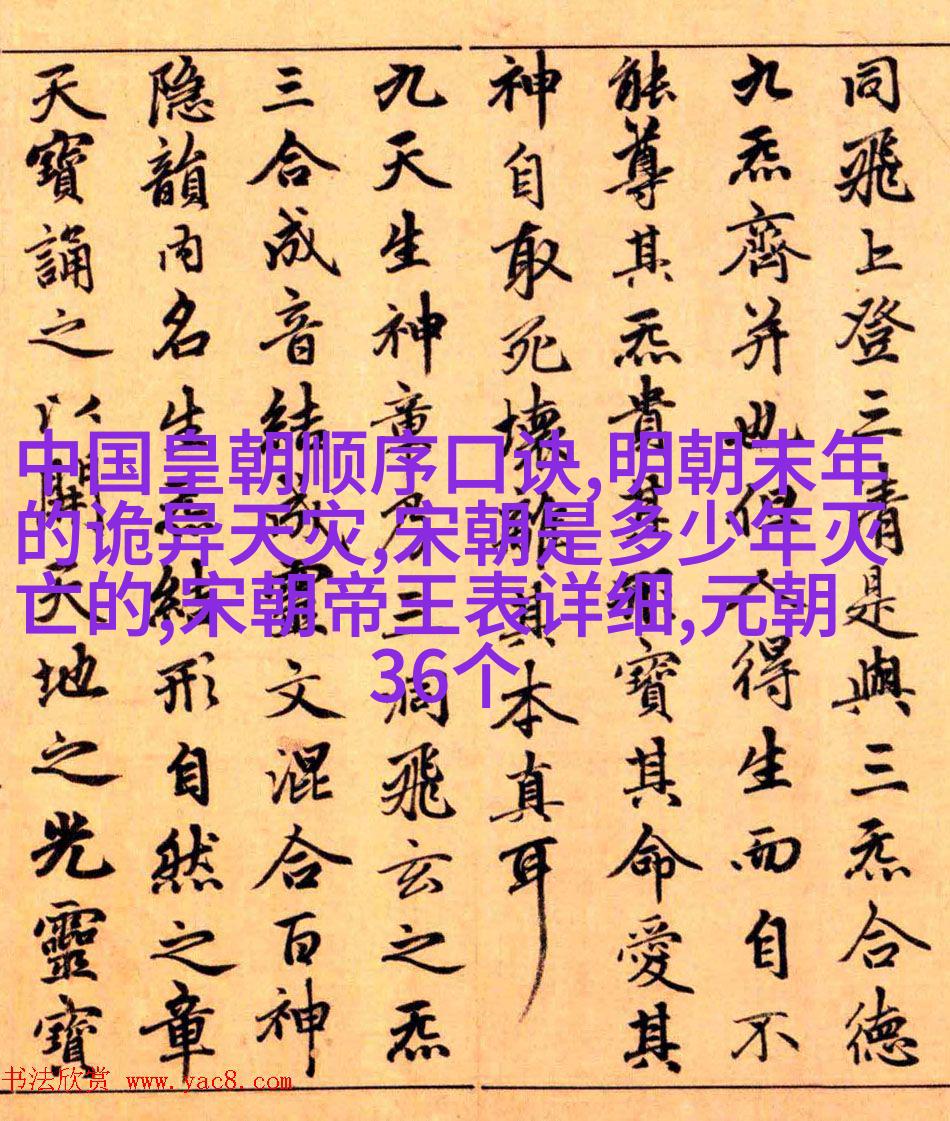 同飛上登三清是與三炁合德
九炁齊并也但人得生而自不
能尊其炁貴其形寶其命愛其
神自取死壞離其本真耳
九天生神章乃三洞飛玄之炁
三合成音結成靈文混合百神
隱韻內名生炁結形自然之章
天寶誦之以開天地之光靈寶
中国皇朝顺序口诀,明朝末年
的诡异天灾,宋朝是多少年灭
亡的,宋朝帝王表详细,元朝
36个
书法欣赏 www.yac8.com